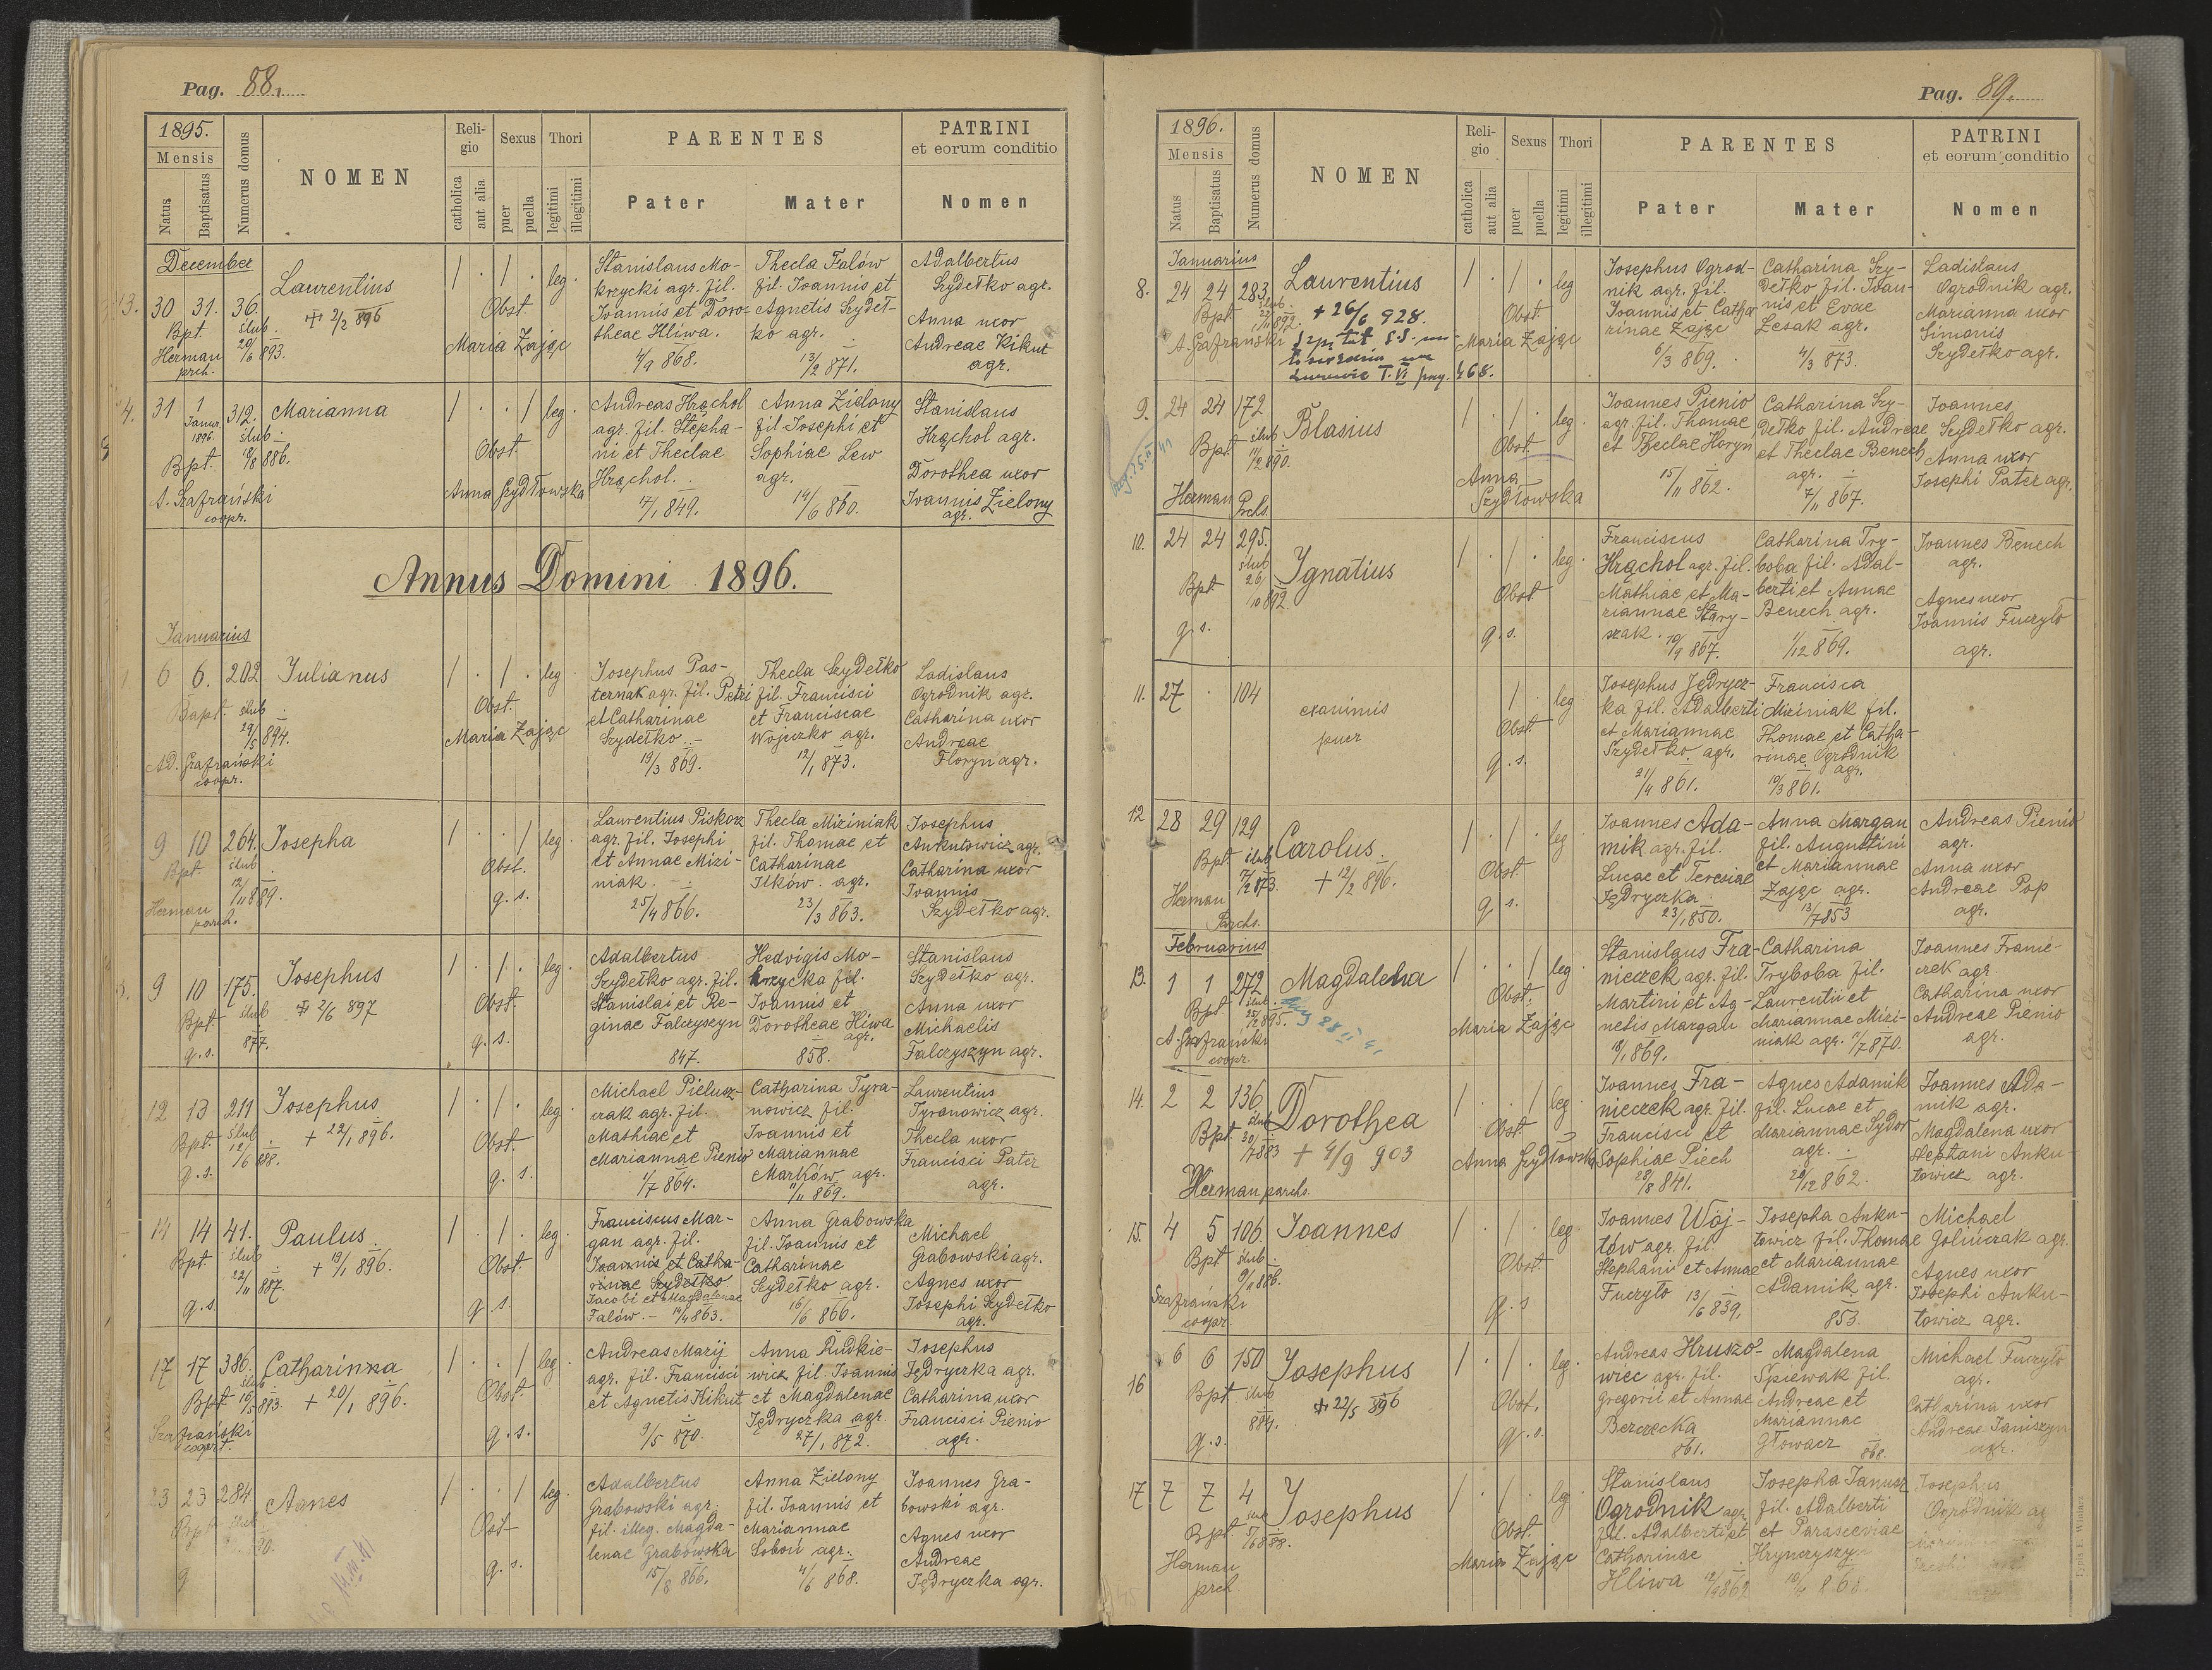 Pag. 88.
1895.
Mensis
Natus
Baptisatus
Numerus domus
NOMEN
Reli-
gio
catholica
aut alia
Sexus
puer
puella
Thori
legitimi
illegitimi
PARENTES
Pater
Mater
PATRINI
et eorum conditio
Nomen
December
30 31. 36.
Bpt. ślub
Herman 20/6 893.
prch.
Laurentius
+ 2/2 896
1 . 1 . leg.
Obst.
Maria Zając
Stanislaus Mo-
krzycki agr. fil.
Joannis et Doro-
theae Hliwa.
4/9 868.
Thecla Falów
fil. Joannis et
Agnetis Szydeł-
ko agr.
13/2 871.
Adalbertus
Szydełko agr.
Anna uxor
Andreae Kikut
agr.
4. 31 1 312.
Januar. 1896. ślub
Bpt. 886.
A. Szafrański
coopr.
Marianna
1 . . 1 leg.
Obst.
Anna Szydłowska
Andreas Hrąchol
agr. fil. Stepha-
ni et Theclae
Hrąchol.
17/1 849.
Anna Zielony
fil. Josephi et
Sophiae Lew
agr.
14/6 860.
Stanislaus
Hrąchol agr.
Dorothea uxor
Joannis Zielony
agr.
Annus Domini 1896.
Januarius
6 6. 202
Bapt. ślub
29/5 894.
Ad. Szafrański
coopr.
Julianus
1 . 1 . leg.
Obst.
Maria Zając
Josephus Pas-
ternak agr. fil. Petri
et Catharinae
Szydełko
19/3 869.
Thecla Szydełko
fil. Francisci
et Franciscae
Wojczko agr.
12/1 873.
Ladislaus
Ogrodnik agr.
Catharina uxor
Andreae
Floryn agr.
9 10 264.
Bpt. ślub
12/11 889.
Herman
paroch.
Josepha
1 . . 1 leg.
Obst.
q. s.
Laurentius Piskorz
agr. fil. Josephi
et Annae Mizi-
niak.
25/4 866.
Thecla Miziniak
fil. Thomae et
Catharinae
Ilków. agr.
23/3 863.
Josephus
Ankutowicz agr.
Catharina uxor
Joannis
Szydełko agr.
9 10 175.
Bpt. ślub
q. s. 877.
Josephus
+ 2/6 897
1 . 1 . leg.
Obst.
q. s.
Adalbertus
Szydełko agr. fil.
Stanislai et Re-
ginae Falczyszyn
847.
Hedvigis Mo-
krzycka fil.
Joannis et
Dorotheae Hliwa
agr.
858.
Stanislaus
Szydełko agr.
Anna uxor
Michaelis
Falczyszyn agr.
12 13 211
Bpt. ślub
q. s. 12/6 888.
Josephus
+ 22/1 896.
1 . 1 . leg.
Obst.
q. s.
Michael Pielusz-
czak agr. fil.
Mathiae et
Mariannae Pienio
1/7 864.
Catharina Tyra-
nowicz fil.
Joannis et
Mariannae
Marków agr.
11/11 869.
Laurentius
Tyranowicz agr.
Thecla uxor
Francisci Pater
agr.
14 14 41.
Bpt. ślub
22/11 887.
q. s.
Paulus
+ 19/1 896.
1 . 1 . leg.
Obst.
q. s.
Franciscus Mar-
gan agr. fil.
Joannis et Catha-
rinae Szydełko
Jacobi et Magdalenae
Falów. - 14/4 863.
Anna Grabowska
fil. Joannis et
Catharinae
Szydełko agr.
16/6 866.
Michael
Grabowski agr.
Agnes uxor
Josephi Szydełko
agr.
17 17 386.
Bpt. ślub 893.
Szafrański
coopr.
Catharinna
+ 20/1 896.
1 . . 1 leg.
Obst.
q. s.
Andreas Marij
agr. fil. Francisci
et Agnetis Kikut
9/5 870.
Anna Rudkie-
wicz fil. Joannis
et Magdalenae
Jędryczka agr.
27/1 872.
Josephus
Jędryczka agr.
Catharina uxor
Francisci Pienio
agr.
23 23 284
Bpt. ślub
Agnes
1 . . 1 leg.
Obst
q. s.
Adalbertus
Grabowski agr.
fil. illeg. Magda-
lenae Grabowska
15/8 866.
Anna Zielony
fil. Joannis et
Mariannae
Soboń agr.
4/6 868.
Joannes Gra-
bowski agr.
Agnes uxor
Andreae
Jędryczka agr.
Pag. 89.
1896.
Mensis
Natus
Baptisatus
Numerus domus
NOMEN
Reli-
gio
catholica
aut alia
Sexus
puer
puella
Thori
legitimi
illegitimi
PARENTES
Pater
Mater
PATRINI
et eorum conditio
Nomen
Januarius
8. 24 24 283
Bpt ślub
892.
A. Szafrański
Laurentius
+ 26/6 928.
T. VI pag. 468.
1 . 1 . leg
Obst
Maria Zając
Josephus Ogrod-
nik agr. fil.
Joannis et Catha
rinae Zając
6/3 869.
Catharina Szy-
dełko fil. Joan-
nis et Evae
Lesak agr.
4/3 873.
Ladislaus
Ogrodnik agr.
Marianna uxor
Simonis
Szydełko agr.
9. 24 24 172
Bpt ślub
890.
Herman Prchs.
Blasius
1 . 1 . leg.
Obst.
Anna
Szydłowska
Joannes Pienio
agr. fil. Thomae
et Theclae Horyn
15/11 862.
Catharina Szy-
dełko fil. Andreae
et Theclae Benech
agr.
7/11 867.
Joannes
Szydełko agr.
Anna uxor
Josephi Pater agr.
10. 24 24 295.
ślub
Bpt 26/10 892.
q. s.
Ignatius
1 . 1 . leg.
Obst
q. s.
Franciscus
Hrąchol agr. fil.
Mathiae et Ma-
riannae Stary-
szak. 19/9 867.
Catharina Try-
boba fil. Adal-
berti et Annae
Benech agr.
1/12 869.
Joannes Benech
agr.
Agnes uxor
Joannis Fuczyło
agr.
11. 27 . 104
exanimis
puer
1 leg
Obst.
q. s.
Josephus Jędrycz-
ka fil. Adalberti
et Mariannae
Szydełko agr.
21/4 861.
Francisca
Miziniak fil.
Thomae et Catha-
rinae Ogrodnik
agr.
19/3 861.
12 28 29 129
Bpt ślub
873.
Herman
Parchs.
Carolus.
+ 12/2 896.
1 . 1 . leg
Obst.
q s.
Joannes Ada-
mik agr. fil.
Lucae et Teresiae
Jędryczka
23/1 850.
Anna Margan
fil. Augustini
et Mariannae
Zając agr.
13/7 853
Andreas Pienio
agr.
Anna uxor
Andreae Pop
agr.
Februarius
13. 1 1 272
Bpt ślub
895.
A. Szafrański
coopr.
Magdalena
1 . . 1 leg
Obst.
Maria Zając
Stanislaus Fra-
nieczek agr. fil.
Martini et Ag-
netis Margan
18/1 869.
Catharina
Tryboba fil.
Laurentii et
Mariannae Mizi-
niak agr. 7/7 870.
Joannes Franie-
czek agr.
Catharina uxor
Andreae Pienio
agr.
14. 2 2 136
Bpt ślub
30/7 883
Herman parchs.
Dorothea
+ 4/9 903
1 . . 1 leg.
Obst.
Anna Szydłowska
Joannes Fra-
nieczek agr. fil.
Francisci et
Sophiae Piech
28/8 841.
Agnes Adamik
fil. Lucae et
Mariannae Sydor
agr.
29/12 862.
Joannes Ada-
mik agr.
Magdalena uxor
Stephani Anku-
towicz agr.
15. 4 5 106.
Bpt ślub
886.
Szafrański
coopr.
Joannes
1 . 1 . leg.
Obst.
q. s
Joannes Woj-
tów agr. fil.
Stephani et Annae
Fuczyło 13/6 839.
Josepha Anku-
towicz fil. Thomae
et Mariannae
Adamik agr.
853.
Michael
Golinczak agr.
Agnes uxor
Josephi Anku-
towicz agr.
16 6 6 150
Bpt ślub
884.
q. s.
Josephus
+ 22/5 896
1 . 1 . leg.
Obst.
q. s.
Andreas Hruszo-
wiec agr. fil.
Gregorii et Annae
Berczecka
861.
Magdalena
Śpiewak fil.
Andreae et
Mariannae
Głowacz 868.
Michael Fuczyło
agr.
Catharina uxor
Andreae Janiszyn
agr.
17 7 7 4
Bpt. ślub
888.
Herman
prch.
Josephus
1 . 1 . leg
Obst.
Maria Zając
Stanislaus
Ogrodnik agr.
fil. Adalberti et
Catharinae
Hliwa
Josepha Janusz
fil. Adalberti
et Parasceviae
Hrynczyszyn
868
Josephus
Ogrodnik ag
Typis E. Winiarz